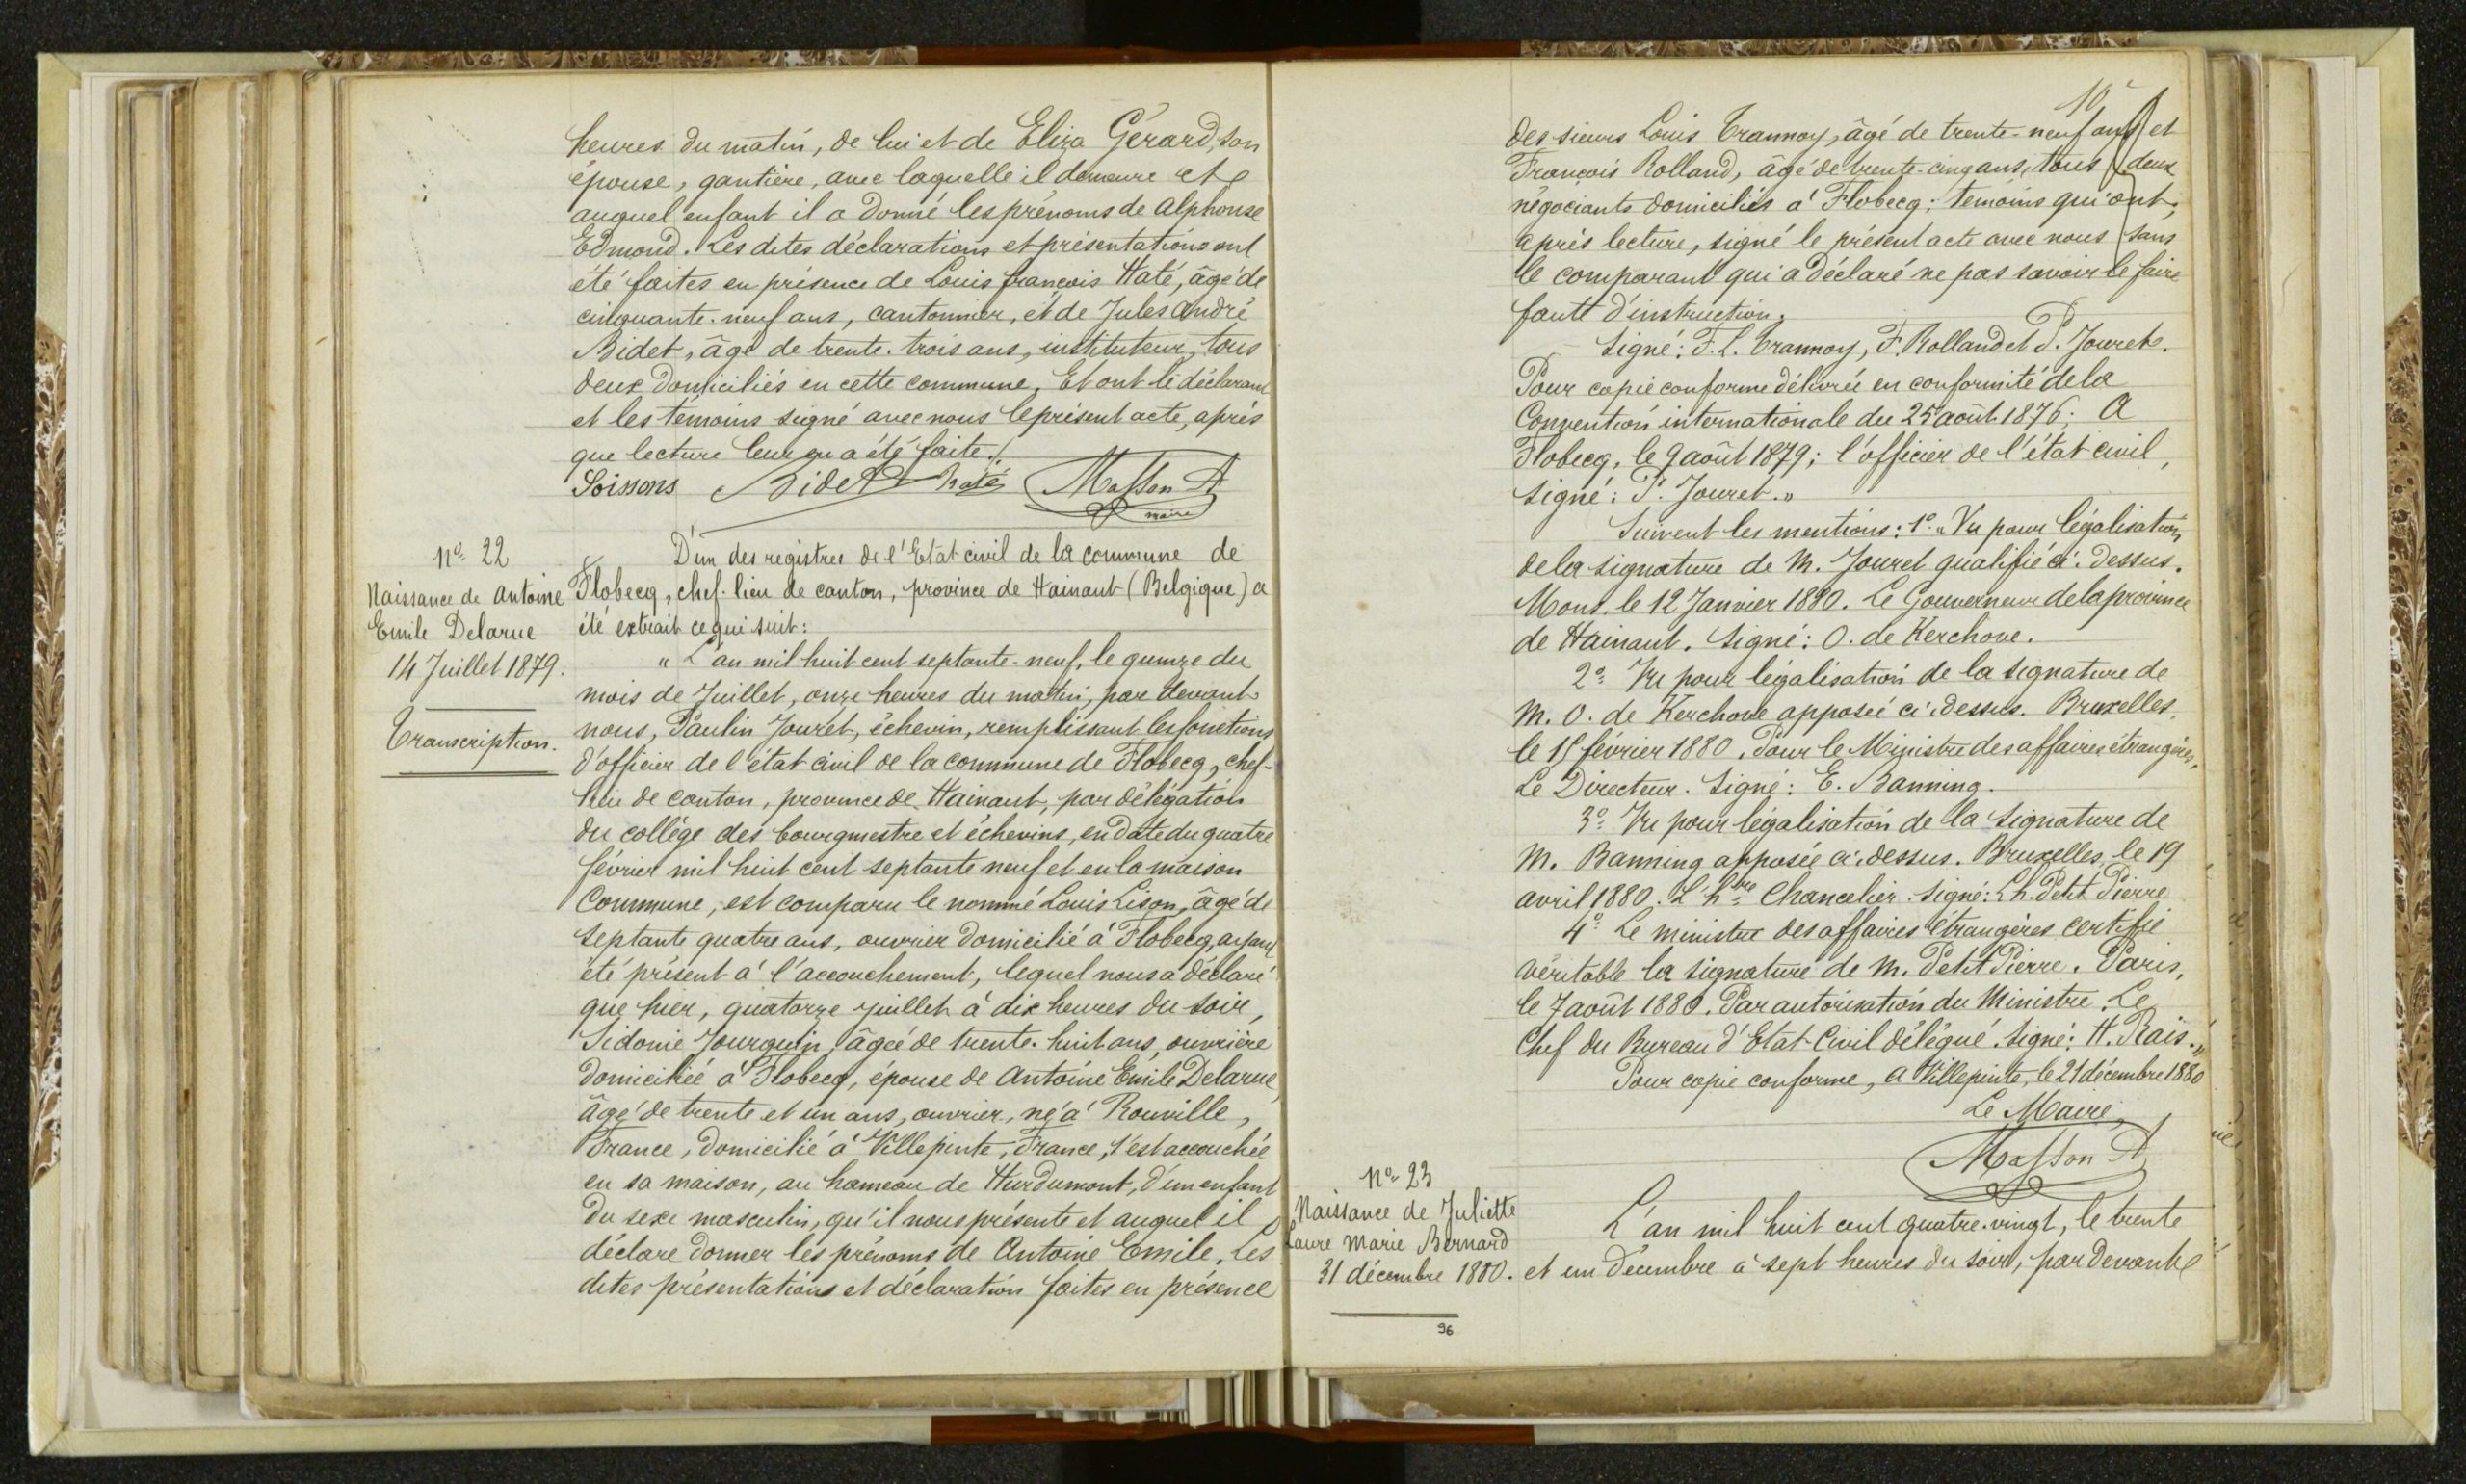 heures du matin, de lui et de Eliza Gérard, son
épouse, gantière, avec laquelle il demeure et
auquel enfant il a donné les prénoms de Alphonse
Edmond. Les dites déclarations et présentations ont
été faites en présence de Louis François Haté, âgé de
cinquante-neuf ans, cantonnier, et de Jules André
Bidet, âgé de trente-trois ans, instituteur, tous
deux domiciliés en cette commune, Et ont le déclarant
et les témoins signé avec nous le présent acte, après
que lecture leur en a été faite.
Soissons Bidet Haté Masson A
maire
No 22
Naissance de Antoine
Emile Delarue
14 Juillet 1879.
Transcription.
D'un des registres de l'Etat civil de la commune de
Flobecq, chef-lieu de canton, province de Hainaut (Belgique) a
été extrait ce qui suit:
"L'an mil huit cent septante-neuf, le quinze du
mois de Juillet, onze heures du matin, par devant
nous, Paulin Jouret, échevin, remplissant les fonctions
d'officier de l'état civil de la commune de Flobecq, chef-
lieu de canton, province de Hainaut, par délégation
du collège des bourgmestre et échevins, en date du quatre
février mil huit cent septante neuf et en la maison
Commune, est comparu le nommé Louis Lison, âgé de
septante quatre ans, ouvrier domicilié à Flobecq, ayant
été présent à l'accouchement, lequel nous a déclaré
que hier, quatorze juillet à dix heures du soir,
Sidonie Jourquin, âgée de trente-huit ans, ouvrière
domiciliée à Flobecq, épouse de Antoine Emile Delarue,
âgé de trente et un ans, ouvrier, né à Rouville,
France, domicilié à Villepinte, France, s'est accouchée
en sa maison, au hameau de Hurdumont, d'un enfant
du sexe masculin, qu'il nous présente et auquel il
déclare donner les prénoms de Antoine Emile. Les
dites présentations et déclaration faites en présence
10
des sieurs Louis Trannoy, âgé de trente-neuf ans et
François Rolland, âgé de trente-cinq ans, tous deux
négociants domiciliés à Flobecq; témoins qui ont,
après lecture, signé le présent acte avec nous sans
le comparant qui a déclaré ne pas savoir le faire
faute d'instruction.
Signé: F. L. Trannoy, F. Rolland et P. Jouret.
Pour copie conforme délivrée en conformité de la
Convention internationale du 25 août 1876; A
Flobecq, le 9 août 1879; l'officier de l'état civil,
signé: P. Jouret."
Suivent les mentions: 1o "Vu pour légalisation
de la signature de M. Jouret qualifié ci-dessus.
Mons, le 12 Janvier 1880. Le Gouverneur de la province
de Hainaut. Signé: O. de Kerchove.
2o Vu pour légalisation de la signature de
M. O. de Kerchove apposée ci-dessus. Bruxelles,
le février 1880. Pour le Ministre des affaires étrangères,
Le Directeur. Signé: E. Banning.
3o Vu pour légalisation de la signature de
M. Banning apposée ci-dessus. Bruxelles, le 19
avril 1880. Chancelier. Signé: Ch. Petit Pierre
4o Le ministre des affaires étrangères certifie
véritable la signature de M. Petit Pierre. Paris,
le 7 août 1880. Par autorisation du Ministre. Le
Chef du Bureau d'Etat-Civil délégué. Signé: H. Rais."
Pour copie conforme, A Villepinte, le 21 décembre 1880
Le Maire,
Masson A
No 23
Naissance de Juliette
Laure Marie Bernard
31 décembre 1880.
96
L'an mil huit cent quatre-vingt, le trente
et un Décembre à sept heures du soir, par devant